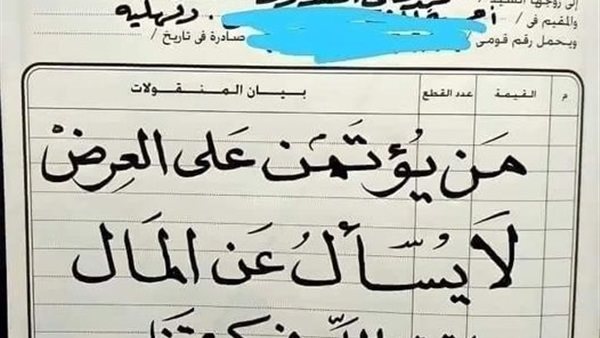 إلى زوجها السيد /
والمقيم فى / دقهلية
ويحمل رقم قومى / صادرة فى تاريخ /
م القيمة عدد القطع بيـان المـنـقـولات
مَن يُؤتَمَن عَلى العِرضْ
لَا يُسَألُ عَن المَال